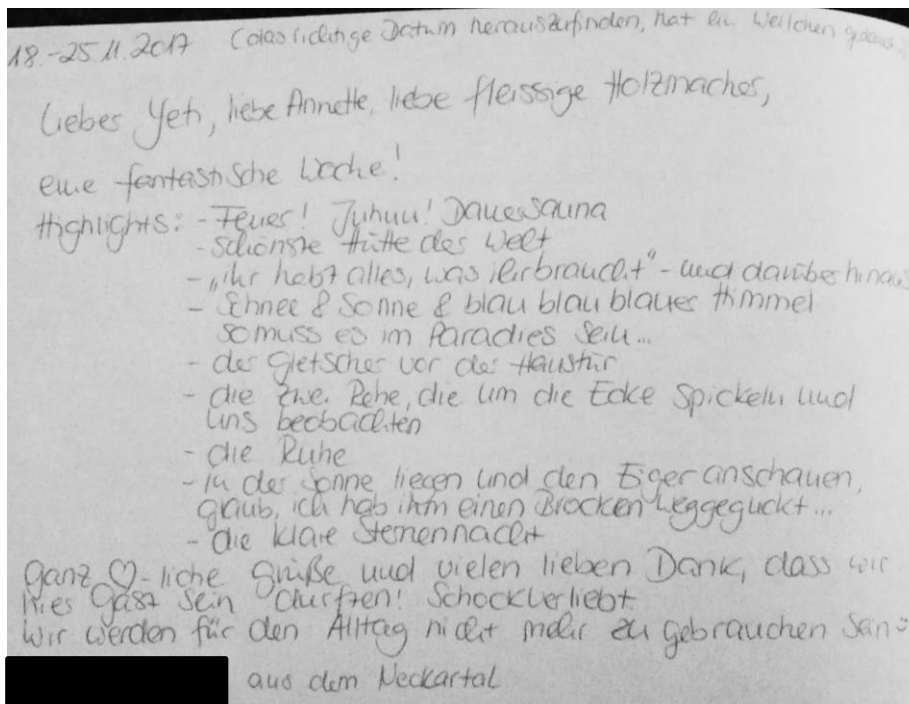 18.-25.11.2017 (das richtige Datum herauszufinden, hat ein Weilchen
Lieber Yeti, liebe Annette, liebe fleissige Holzmacher,
eine fantastische Woche!
Highlights: - Feuer! Juhuu! Dauersauna
- schönste Hütte der Welt
- „ihr habt alles, was ihr braucht" - und darüber hinaus
- Schnee & Sonne & blau blau blauer Himmel
so muss es im Paradies sein...
- der Gletscher vor der Haustür
- die zwei Rehe, die um die Ecke spickeln und
uns beobachten
- die Ruhe
- in der Sonne liegen und den Eiger anschauen,
glaub, ich hab ihm einen Brocken weggeguckt...
- die klare Sternennacht
Ganz ♡-liche Grüße und vielen lieben Dank, dass wir
hier Gast sein durften! Schockverliebt
Wir werden für den Alltag nicht mehr zu gebrauchen sein
aus dem Neckartal